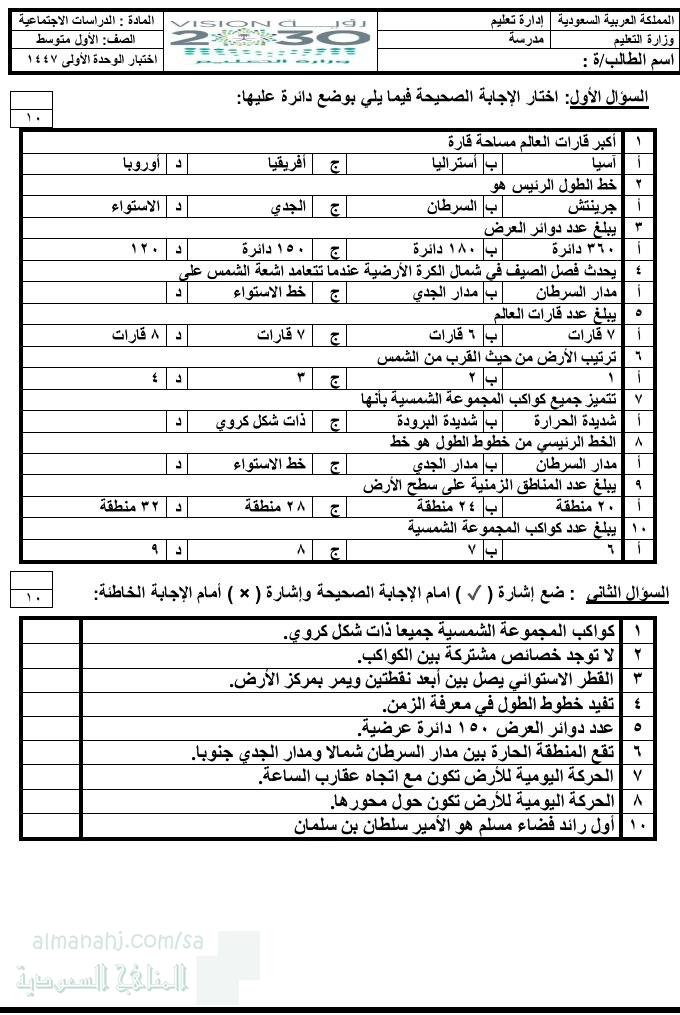 المملكة العربية السعودية إدارة تعليم المادة : الدراسات الاجتماعية
وزارة التعليم مدرسة الصف: الأول متوسط
اسم الطالب/ة : اختبار الوحدة الأولى ١٤٤٧
VISION رؤيـة
2030
وزارة التعليم
السؤال الأول: اختار الإجابة الصحيحة فيما يلي بوضع دائرة عليها:
١٠
١ أكبر قارات العالم مساحة قارة
أ آسيا ب أستراليا ج أفريقيا د أوروبا
٢ خط الطول الرئيس هو
أ جرينتش ب السرطان ج الجدي د الاستواء
٣ يبلغ عدد دوائر العرض
أ ٣٦٠ دائرة ب ١٨٠ دائرة ج ١٥٠ دائرة د ١٢٠
٤ يحدث فصل الصيف في شمال الكرة الأرضية عندما تتعامد اشعة الشمس على
أ مدار السرطان ب مدار الجدي ج خط الاستواء د
٥ يبلغ عدد قارات العالم
أ ٧ قارات ب ٦ قارات ج ٧ قارات د ٨ قارات
٦ ترتيب الأرض من حيث القرب من الشمس
أ ١ ب ٢ ج ٣ د ٤
٧ تتميز جميع كواكب المجموعة الشمسية بأنها
أ شديدة الحرارة ب شديدة البرودة ج ذات شكل كروي د
٨ الخط الرئيسي من خطوط الطول هو خط
أ مدار السرطان ب مدار الجدي ج خط الاستواء د
٩ يبلغ عدد المناطق الزمنية على سطح الأرض
أ ٢٠ منطقة ب ٢٤ منطقة ج ٢٨ منطقة د ٣٢ منطقة
١٠ يبلغ عدد كواكب المجموعة الشمسية
أ ٦ ب ٧ ج ٨ د ٩
السؤال الثاني : ضع إشارة ( ✓ ) امام الإجابة الصحيحة وإشارة ( × ) أمام الإجابة الخاطئة:
١٠
١ كواكب المجموعة الشمسية جميعا ذات شكل كروي.
٢ لا توجد خصائص مشتركة بين الكواكب.
٣ القطر الاستوائي يصل بين أبعد نقطتين ويمر بمركز الأرض.
٤ تفيد خطوط الطول في معرفة الزمن.
٥ عدد دوائر العرض ١٥٠ دائرة عرضية.
٦ تقع المنطقة الحارة بين مدار السرطان شمالا ومدار الجدي جنوبا.
٧ الحركة اليومية للأرض تكون مع اتجاه عقارب الساعة.
٨ الحركة اليومية للأرض تكون حول محورها.
١٠ أول رائد فضاء مسلم هو الأمير سلطان بن سلمان
almanahj.com/sa
المناهج السعودية